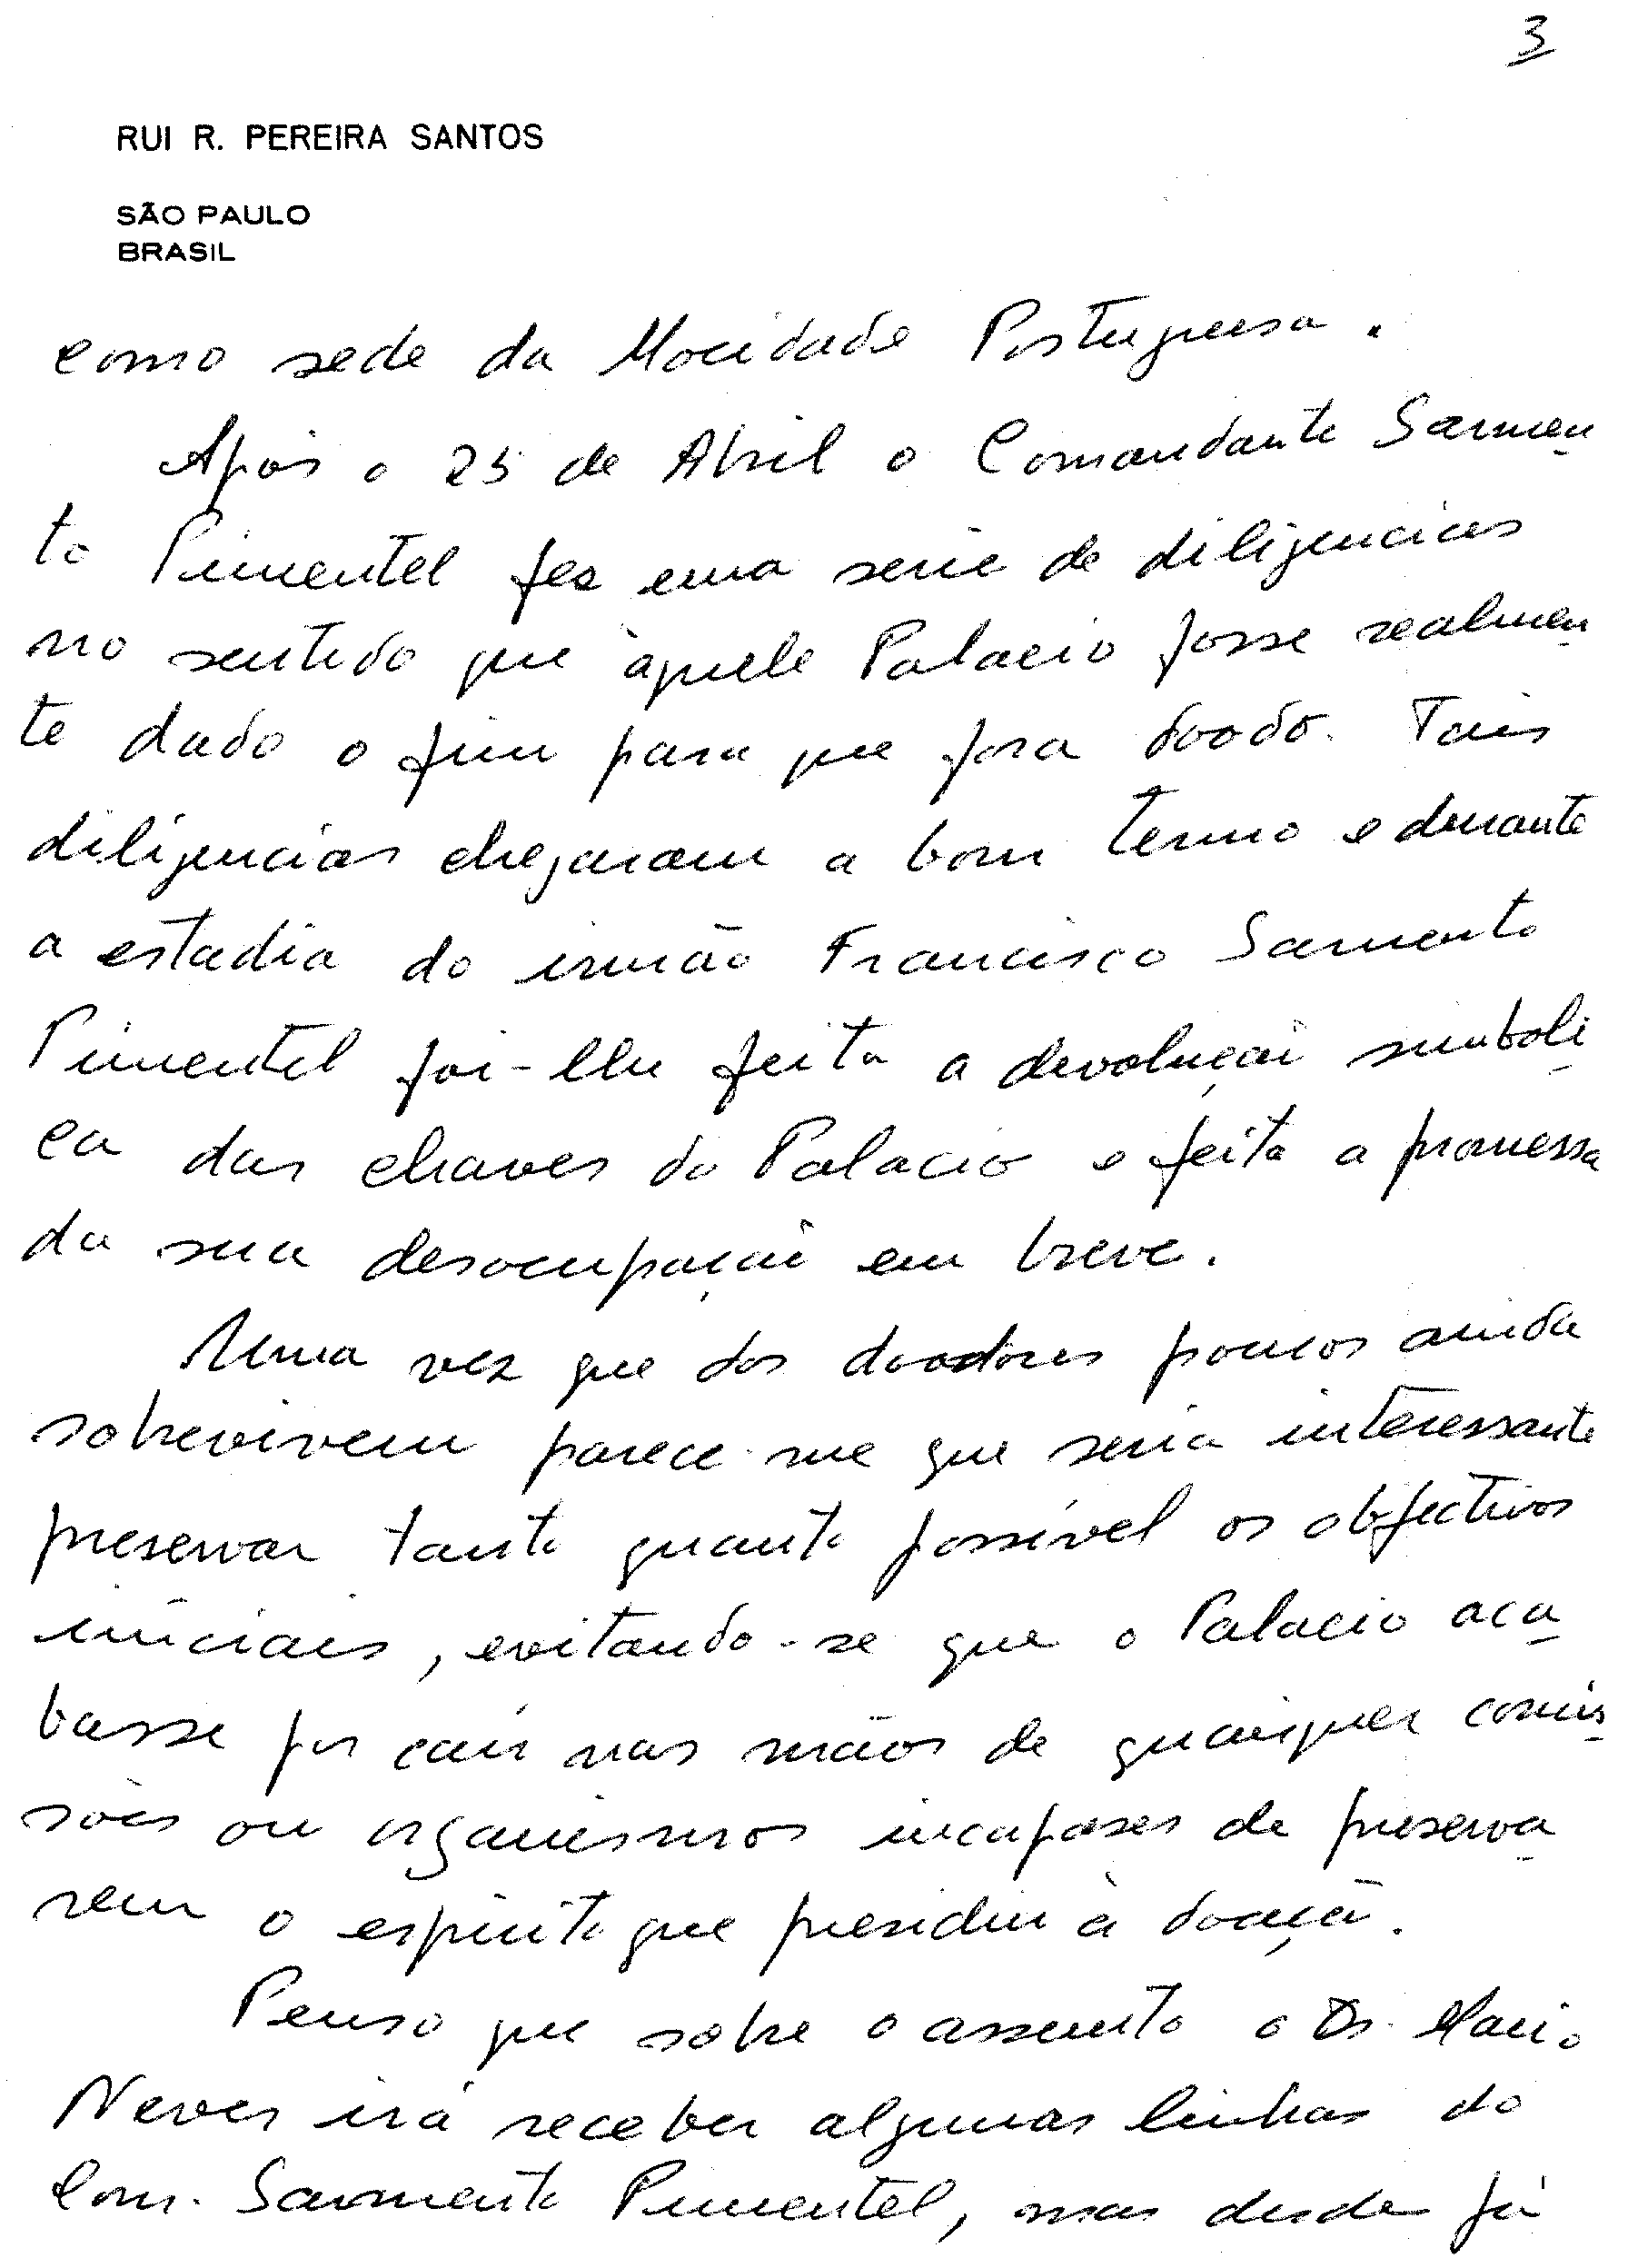 3
RUI R. PEREIRA SANTOS
SÃO PAULO
BRASIL
como sede da Mocidade Portuguesa.
Após o 25 de Abril o Comandante Sarmen
to Pimentel fez uma serie de diligencias
no sentido que àquele Palacio fosse realmen
te dado o fim para que fora doado. Tais
diligencias chegaram a bom termo e durante
a estadia do irmão Francisco Sarmento
Pimentel foi-lhe feita a devolução simboli
ca das chaves do Palacio e feita a promessa
da sua desocupação em breve.
Uma vez que dos doadores poucos ainda
sobrevivem parece-me que seria interessante
preservar tanto quanto possível os objectivos
iniciais, evitando-se que o Palacio aca
basse por cair nas mãos de quaisquer comis
sões ou organismos incapases de preserva
rem o espirito que presidiu à doação.
Penso que sobre o assunto o Dr. Mario
Neves irá receber algumas linhas do
Com. Sarmento Pimentel, mas desde já